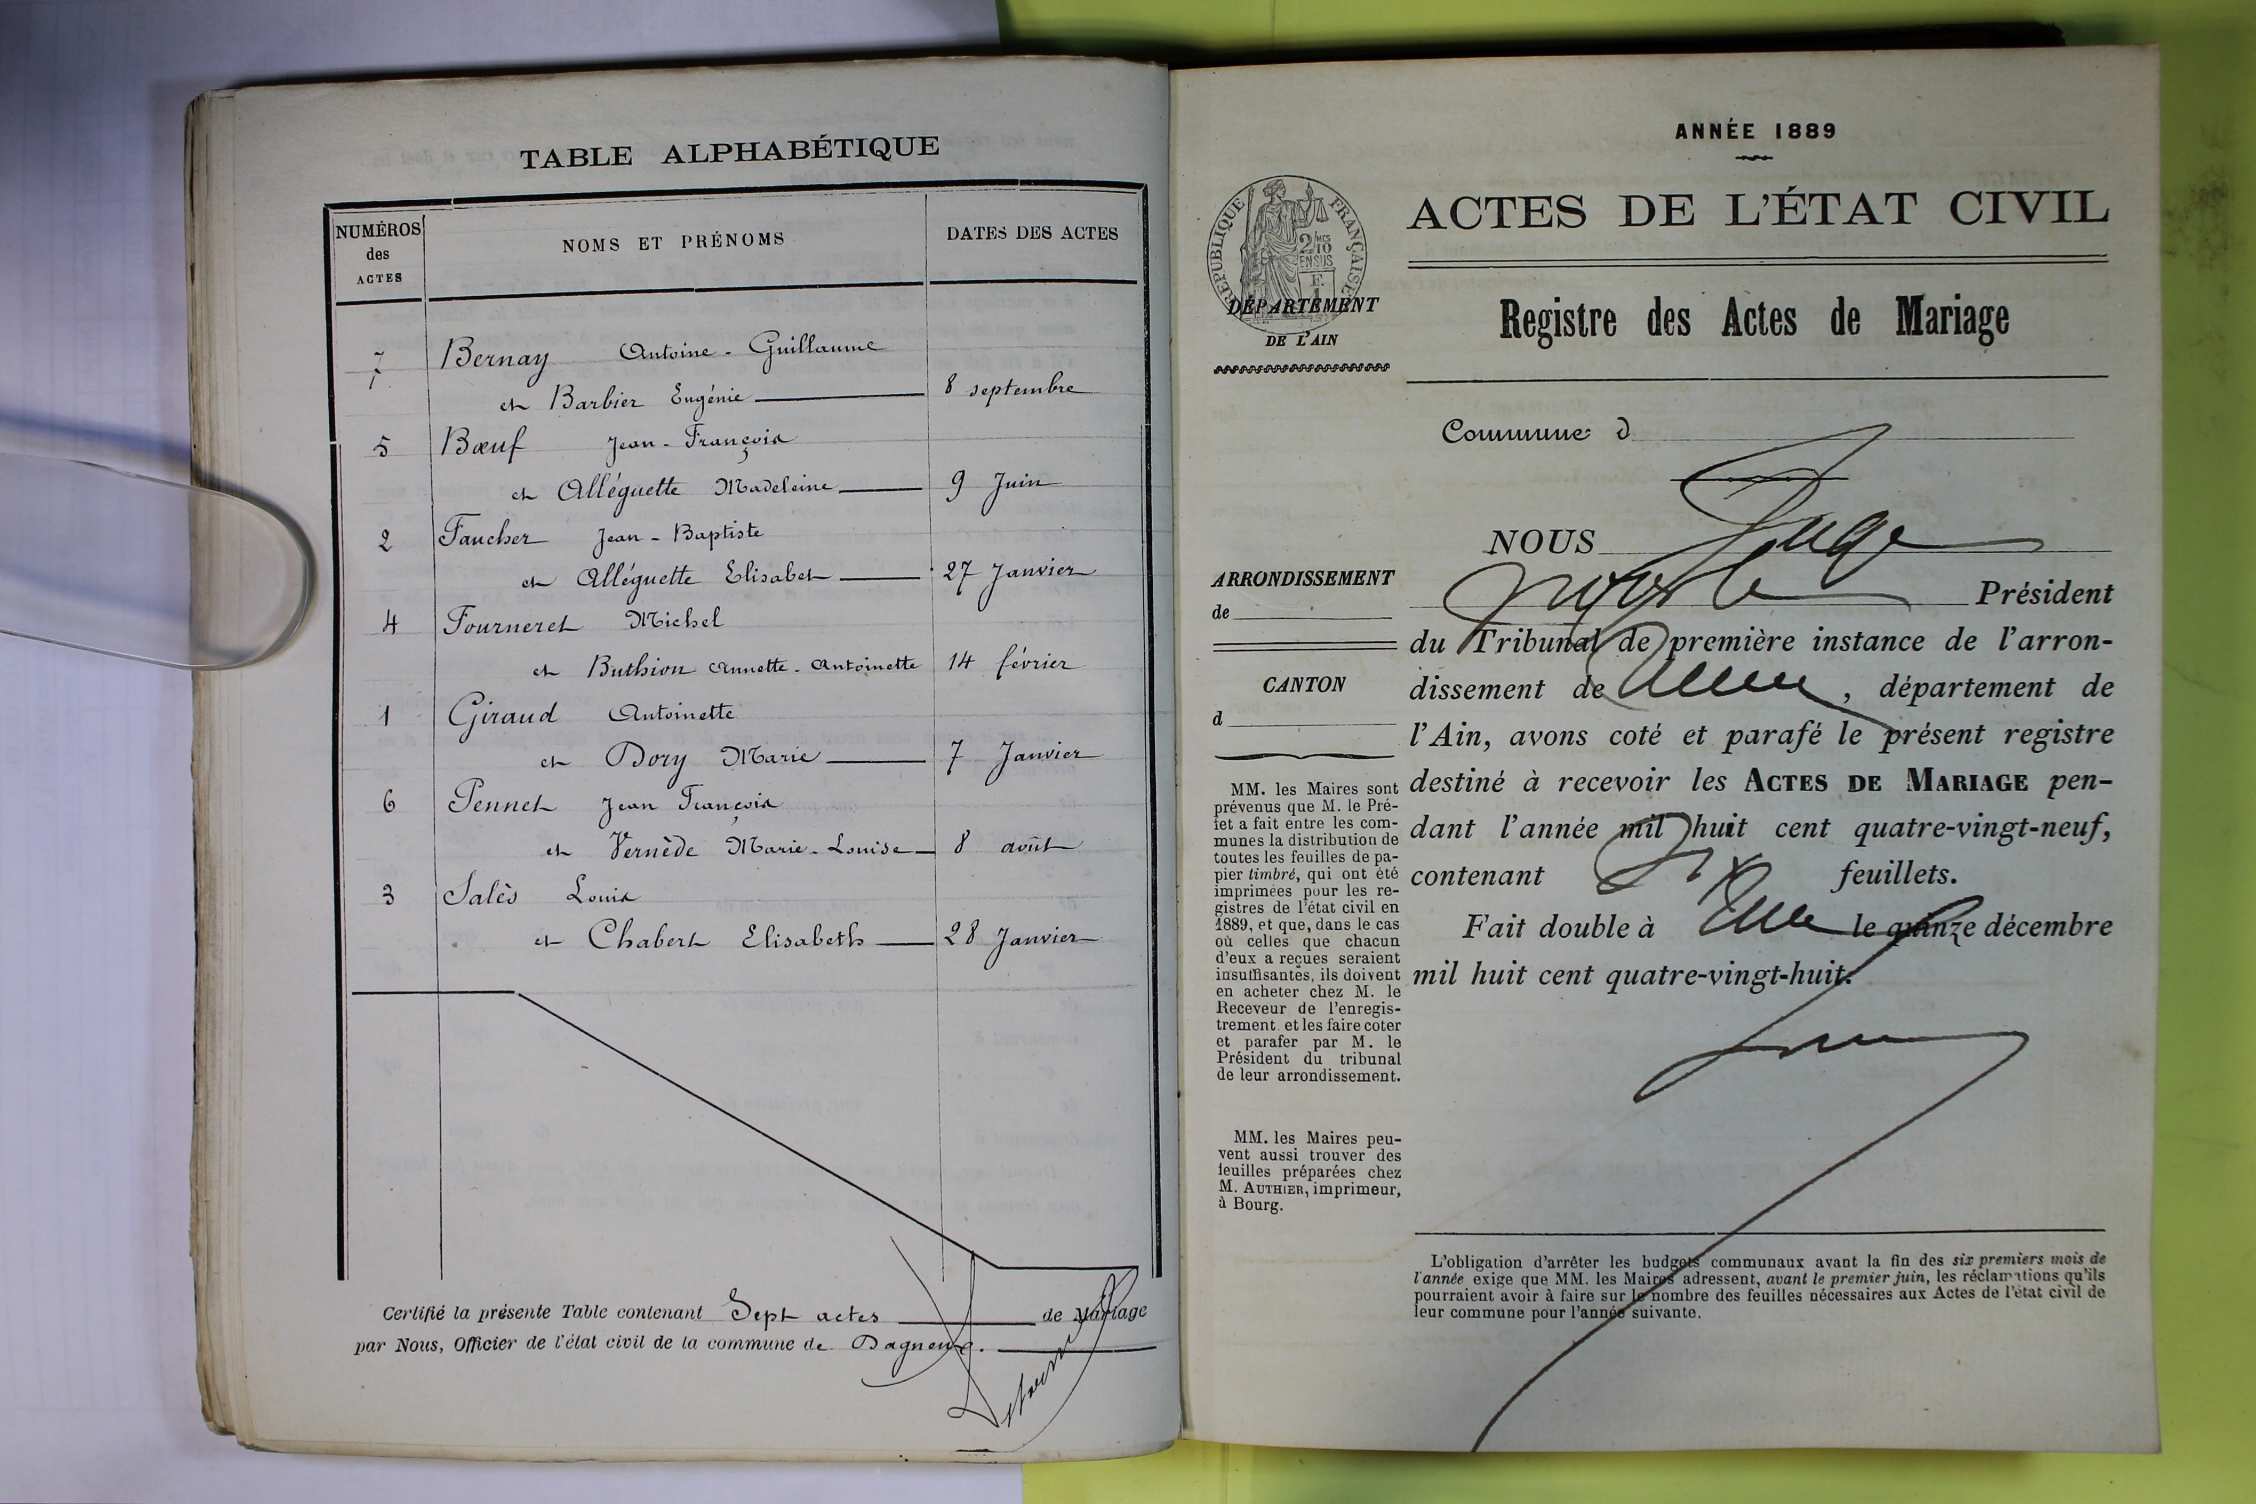 TABLE ALPHABÉTIQUE
NUMÉROS des ACTES
NOMS ET PRÉNOMS
DATES DES ACTES
7 Bernay Antoine - Guillaume
et Barbier Eugénie 8 septembre
5 Bœuf Jean - François
et Alléguette Madeleine 9 Juin
2 Faucher Jean - Baptiste
et Alléguette Elisabet 27 Janvier
4 Fourneret Michel
et Buthion Annette - Antoinette 14 février
1 Giraud Antoinette
et Dory Marie 7 Janvier
6 Pennet Jean François
et Vernède Marie - Louise 8 août
3 Salès Louis
et Chabert Elisabeth 28 Janvier
Certifié la présente Table contenant Sept actes de Mariage
par Nous, Officier de l'état civil de la commune de Dagneux.
ANNÉE 1889
RÉPUBLIQUE FRANÇAISE
ACTES DE L'ÉTAT CIVIL
DÉPARTEMENT
DE L'AIN
Registre des Actes de Mariage
Commune d
NOUS
ARRONDISSEMENT
de
CANTON
d
Président
du Tribunal de première instance de l'arron-
dissement de , département de
l'Ain, avons coté et parafé le présent registre
destiné à recevoir les ACTES DE MARIAGE pen-
dant l'année mil huit cent quatre-vingt-neuf,
contenant Dix feuillets.
Fait double à le quinze décembre
mil huit cent quatre-vingt-huit.
MM. les Maires sont
prévenus que M. le Pré-
fet a fait entre les com-
munes la distribution de
toutes les feuilles de pa-
pier timbré, qui ont été
imprimées pour les re-
gistres de l'état civil en
1889, et que, dans le cas
où celles que chacun
d'eux a reçues seraient
insuffisantes, ils doivent
en acheter chez M. le
Receveur de l'enregis-
trement et les faire coter
et parafer par M. le
Président du tribunal
de leur arrondissement.
MM. les Maires peu-
vent aussi trouver des
feuilles préparées chez
M. AUTHIER, imprimeur,
à Bourg.
L'obligation d'arrêter les budgets communaux avant la fin des six premiers mois de
l'année exige que MM. les Maires adressent, avant le premier juin, les réclamations qu'ils
pourraient avoir à faire sur le nombre des feuilles nécessaires aux Actes de l'état civil de
leur commune pour l'année suivante.